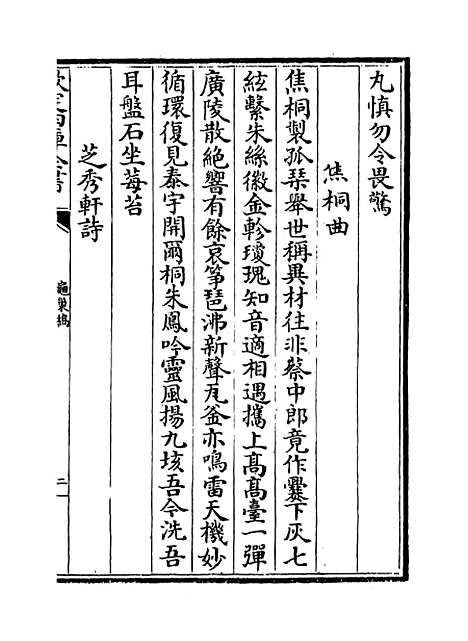 丸慎勿令畏驚
焦桐曲
焦桐製孤琹舉世稱異材往非蔡中郎竟作爨下灰七
絃繫朱絲徽金軫瓊瑰知音適相遇攜上髙髙臺一彈
廣陵散絶響有餘哀筝琶沸新聲瓦釜亦鳴雷天機妙
循環復見泰宇開爾桐朱鳳吟靈風揚九垓吾今洗吾
耳盤石坐莓苔
芝秀軒詩
欽定四庫全書
龜巢稿
二